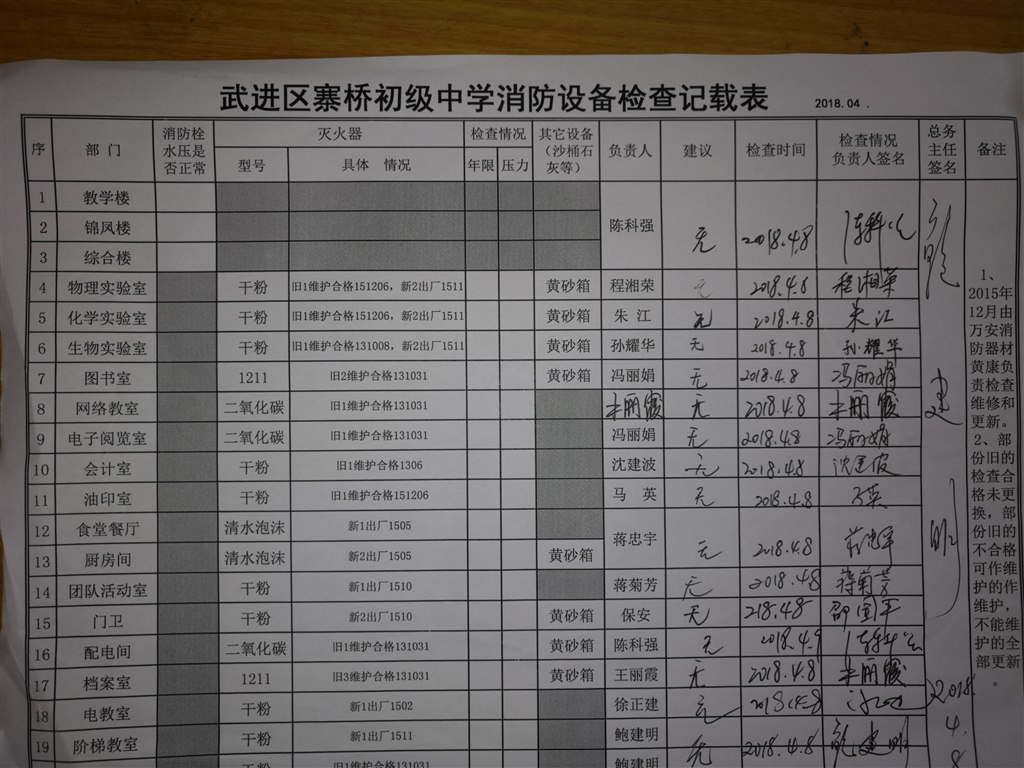 武进区寨桥初级中学消防设备检查记载表 2018.04.
序 部门 消防栓水压是否正常 灭火器 检查情况 其它设备（沙桶石灰等） 负责人 建议 检查时间 检查情况负责人签名 总务主任签名 备注
型号 具体 情况 年限 压力
1 教学楼
2 锦凤楼 陈科强 无 2018.4.8
3 综合楼
4 物理实验室 干粉 旧1维护合格151206，新2出厂1511 黄砂箱 程湘荣 无 2018.4.8 程湘荣
5 化学实验室 干粉 旧1维护合格151206，新2出厂1511 黄砂箱 朱江 无 2018.4.8 朱江
6 生物实验室 干粉 旧1维护合格131008，新2出厂1511 黄砂箱 孙耀华 无 2018.4.8 孙耀华
7 图书室 1211 旧2维护合格131031 黄砂箱 冯丽娟 无 2018.4.8 冯丽娟
8 网络教室 二氧化碳 旧1维护合格131031 王丽霞 无 2018.4.8 王丽霞
9 电子阅览室 二氧化碳 旧1维护合格131031 冯丽娟 无 2018.4.8 冯丽娟
10 会计室 干粉 旧1维护合格1306 沈建波 无 2018.4.8 沈建波
11 油印室 干粉 旧1维护合格151206 马英 无 2018.4.8 马英
12 食堂餐厅 清水泡沫 新1出厂1505 蒋忠宇 无 2018.4.8
13 厨房间 清水泡沫 新2出厂1505 黄砂箱
14 团队活动室 干粉 新1出厂1510 蒋菊芳 无 2018.4.8 蒋菊芳
15 门卫 干粉 新2出厂1510 黄砂箱 保安 无 218.4.8
16 配电间 二氧化碳 旧1维护合格131031 黄砂箱 陈科强 无
17 档案室 1211 旧3维护合格131031 黄砂箱 王丽霞 无 2018.4.8 王丽霞
18 电教室 干粉 新1出厂1502 徐正建 无
19 阶梯教室 干粉 新1出厂1511 鲍建明 无 2018.4.8 鲍建明
干粉 旧1维护合格131031 鲍建明
鲍建明
2018.
4.
8
1、
2015年
12月由
万安消
防器材
黄康负
责检查
维修和
更新。
2、部
份旧的
检查合
格未更
换，部
份旧的
不合格
可作维
护的作
维护，
不能维
护的全
部更新
。